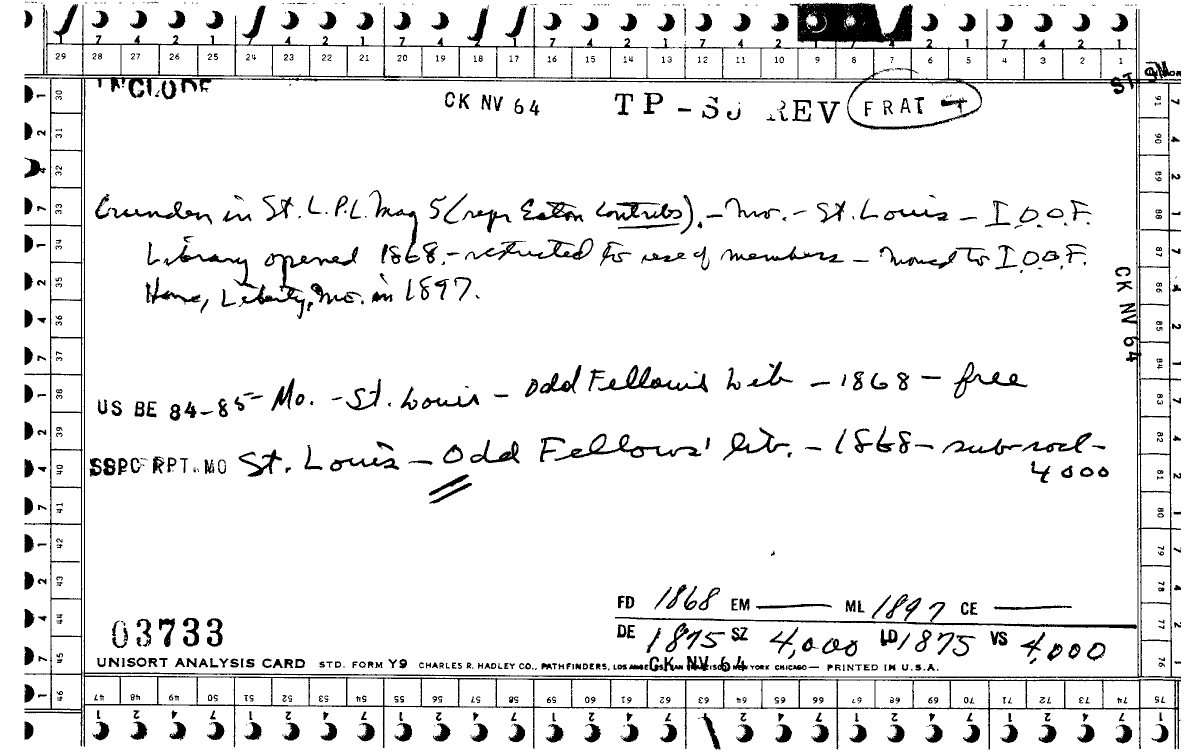 7 4 2 1 7 4 2 1 7 4 2 1 7 4 2 1 7 4 2 1 7 4 2 1 7 4 2 1
29 28 27 26 25 24 23 22 21 20 19 18 17 16 15 14 13 12 11 10 9 8 7 6 5 4 3 2 1
INCLUDE
CK NV 64 TP-SJ REV FRAT 4
ST
Crunden in St. L. P. L. Mag 5 (repr Eaton Contribs). - Mo. - St. Louis - I.O.O.F.
Library opened 1868. - restricted to use of members - Moved to I.O.O.F.
Home, Liberty, Mo. in 1897.
CK NV 64
US BE 84-85 - Mo. - St. Louis - Odd Fellows Lib - 1868 - free
SSPC RPT. MO St. Louis - Odd Fellows' lib. - 1868 - sub-socl -
4000
FD 1868 EM — ML 1897 CE —
03733 DE 1875 SZ 4,000 LD 1875 VS 4,000
UNISORT ANALYSIS CARD STD. FORM Y9 CHARLES R. HADLEY CO., PATHFINDERS, LOS ANGELES SAN FRANCISCO NEW YORK CHICAGO — PRINTED IN U.S.A.
CK NV 64
30 31 32 33 34 35 36 37 38 39 40 41 42 43 44 45 46
47 48 49 50 51 52 53 54 55 56 57 58 59 60 61 62 63 64 65 66 67 68 69 70 71 72 73 74 75
91 90 89 88 87 86 85 84 83 82 81 80 79 78 77 76